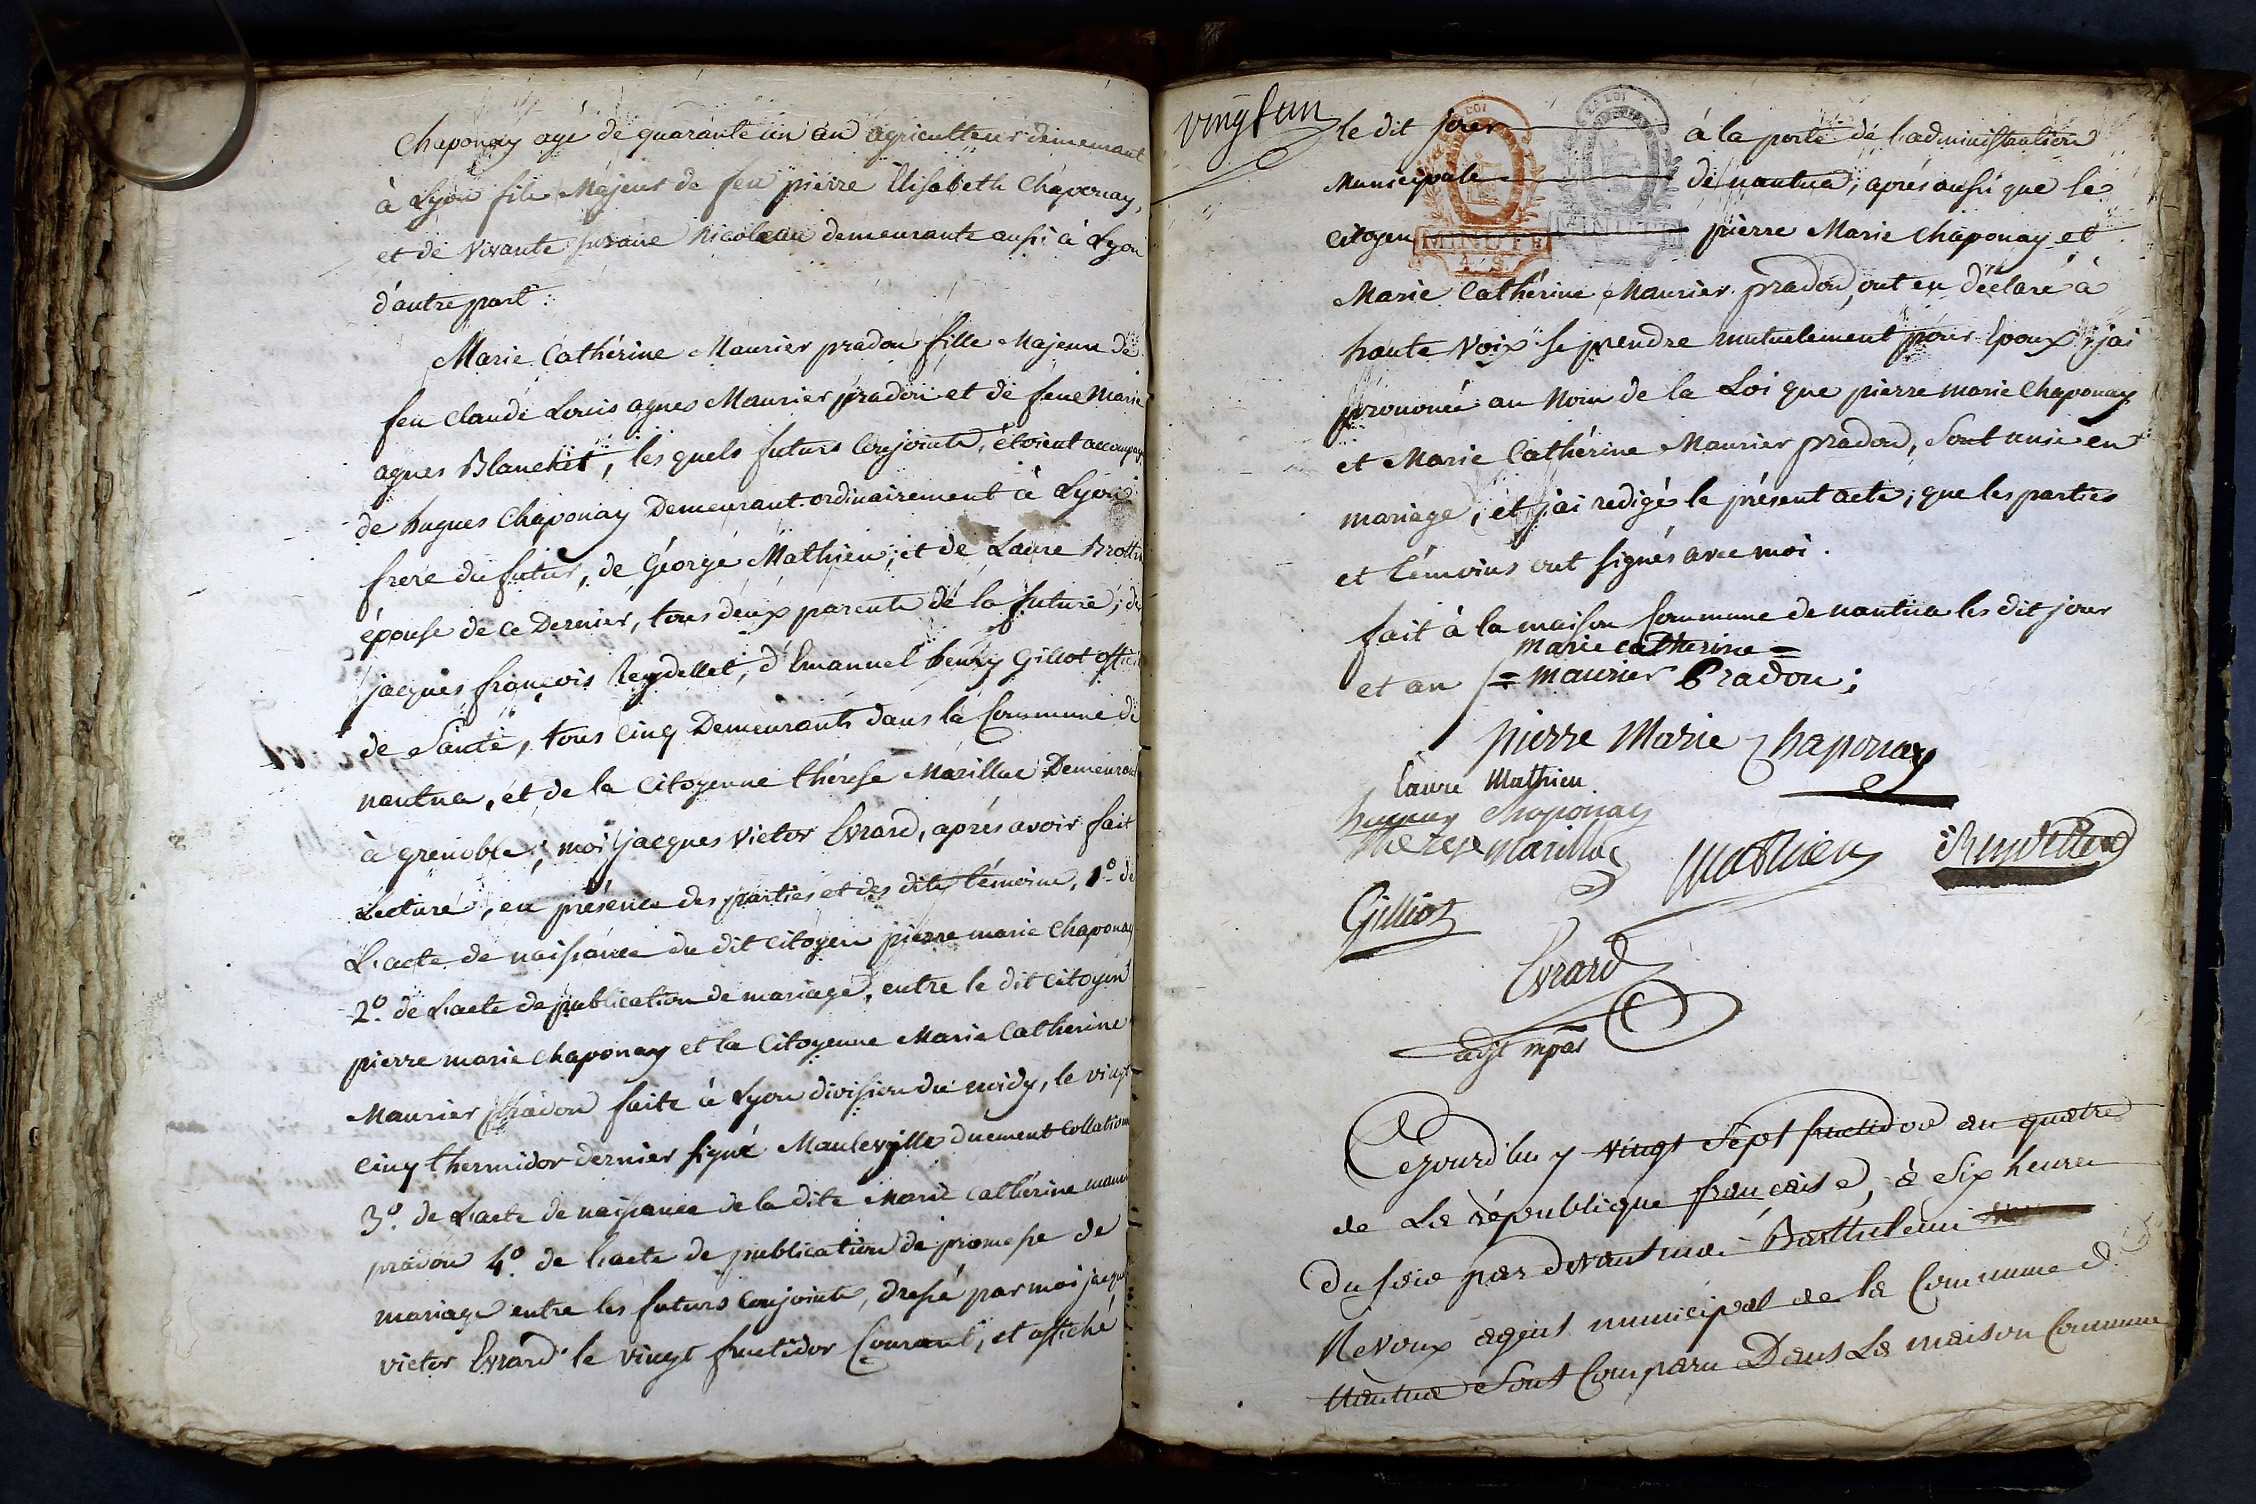 Chaponay agé de quarante un an agriculteur demeurant
à Lyon fils Majeur de feu pierre Elisabeth Chaponay,
et de vivante susane Nicoleau demeurante aussi à Lyon
d'autre part.
Marie Cathérine Maurier pradon fille Majeure de
feu Claude Louis agnes Maurier pradon et de feue Marie
agnes Blanchet, les quels futurs Conjoints, étoient accompag
de hugues Chaponay Demeurant ordinairement à Lyon
frere du futur, de George Mathieu, et de Laure Brottu
épouse de ce Dernier, tous deux parents de la future; de
jacques françois Reydellet, d'Emanuel henry Gilliot offici
de Santé, tous cinq Demeurants dans la Commune de
nantua, et de la Citoyenne thérese Marillac Demeurant
à grenoble; moi jacques victor Evrard, après avoir fait
Lecture, en présence des parties et des dits témoins, 1º de
L'acte de naissance du dit citoyen pierre marie Chaponay
2º. de L'acte de publication de mariage, entre le dit citoyen
pierre marie Chaponay et la Citoyenne Marie Catherine
Maurier pradon faite à Lyon division du midy, le vingt
cinq thermidor dernier signé Mauleville duement Collationn
3º. de L'acte de naissance de la dite Marie Cathérine maur
pradon 4º. de L'acte de publication de promesse de
mariage entre les futurs Conjoints, dressé par moi jacques
victor Evrard le vingt fructidor Courant, et affiché
vingt un
le dit jour à la porte de l'administration
Municipale de nantua; après aussi que le
Citoyen pierre Marie Chaponay et
LA LOI
MINUTE
MINUTE
Marie Cathérine Maurier pradon, ont eu déclaré à
haute Voix se prendre mutuelement pour Epoux, j'ai
prononcé au Nom de la Loi que pierre marie Chaponay
et Marie Cathérine Maurier pradon, Sont unis en
mariage, et j'ai redigé le présent acte, que les parties
et témoins ont signés avec moi.
fait à la maison Commune de nantua les dit jour
et an
marie catherine =
= maurier Pradon;
pierre Marie Chaponay
Laure Mathieu
hugues Chaponay
therese marillac
Mathieu
Reydellet
Gilliot
Evrard
adjt mpal
Cejourd'huy vingt Sept fructidor an quatre
de La république française, à Six heures
du soir par devant moi Barthelemi
Nevoux agent municipal de la Commune de
Nantua Sont Comparu Dans La maison Commune